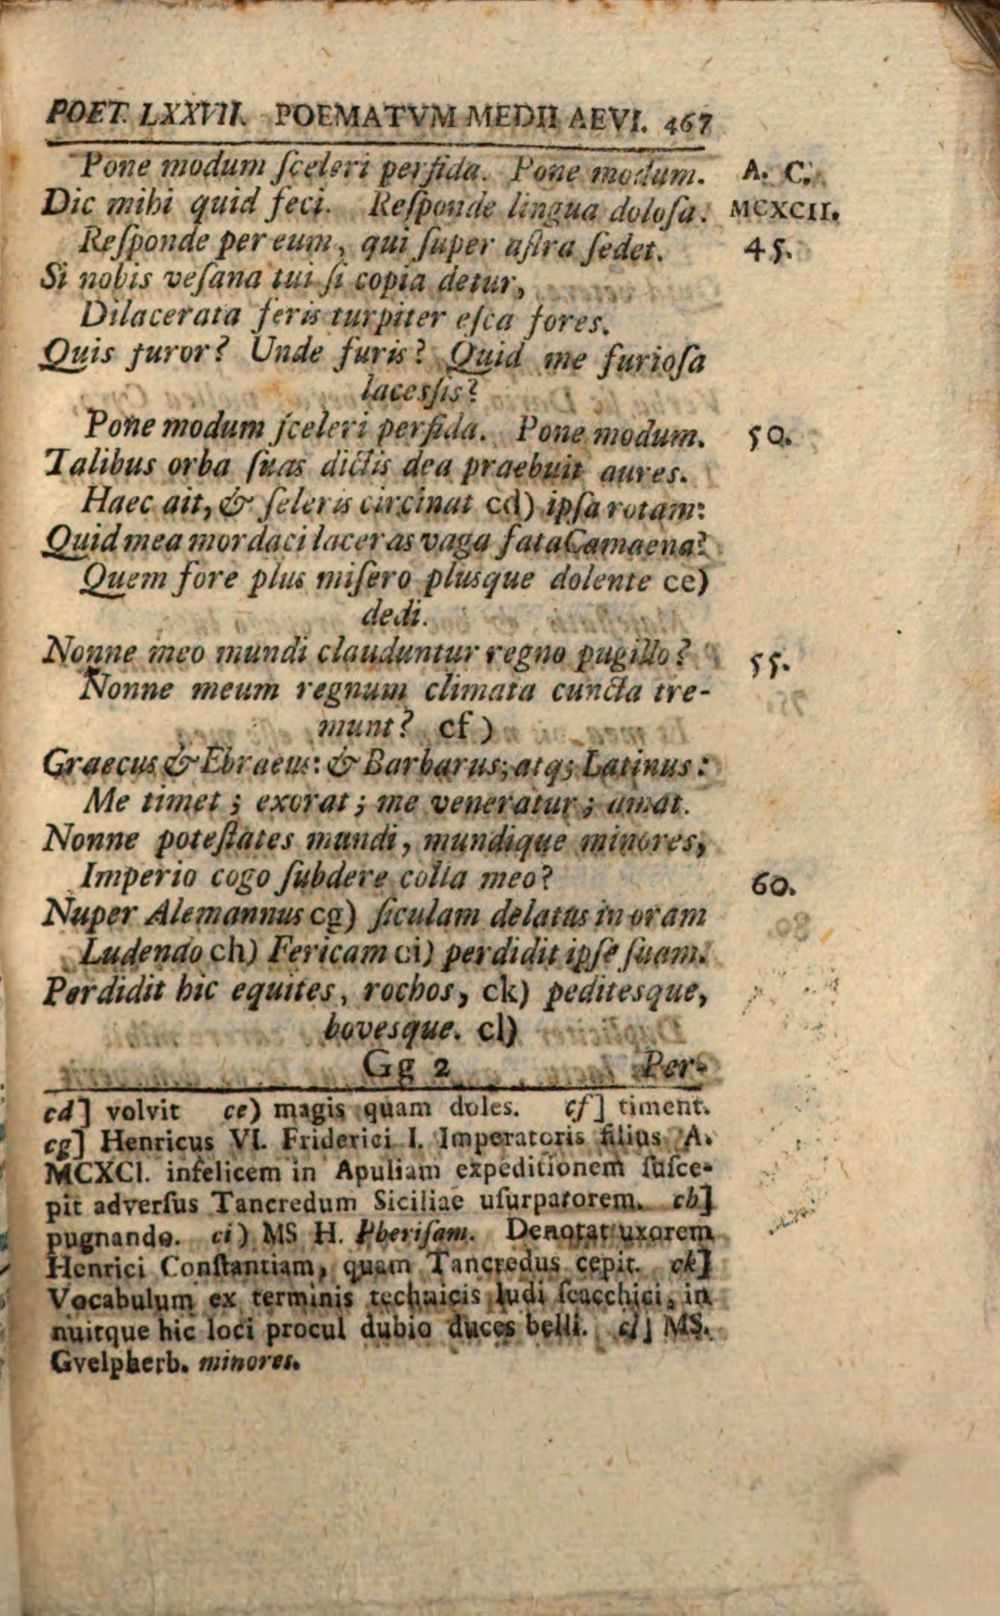 POET. LXXVII. POEMATVM MEDII AEVI. 467
Pone modum ſceleri perfida. Pone modum. A. C.
Dic mihi quid feci. Reſponde lingua doloſa. MCXCII.
Reſponde per eum, qui ſuper aſtra ſedet. 45.
Si nobis veſana tui ſi copia detur,
Dilacerata feris turpiter eſca fores.
Quis furor? Unde furis? Quid me furioſa
laceſſis?
Pone modum ſceleri perfida. Pone modum. 50.
Talibus orba ſuas dictis dea praebuit aures.
Haec ait, & ſeleris circinat cd) ipſa rotam:
Quid mea mordaci laceras vaga fata Camaena?
Quem fore plus miſero plusque dolente ce)
dedi.
Nonne meo mundi clauduntur regno pugillo? 55.
Nonne meum regnum climata cuncta tre-
munt? cf)
Graecus & Ebraeus: & Barbarus; atq; Latinus:
Me timet; exorat; me veneratur; amat.
Nonne poteſtates mundi, mundique minores,
Imperio cogo ſubdere colla meo? 60.
Nuper Alemannus cg) ſiculam delatus in oram
Ludendo ch) Fericam ci) perdidit ipſe ſuam.
Perdidit hic equites, rochos, ck) peditesque,
bovesque. cl)
Gg 2 Per-
cd] volvit ce) magis quam doles. cf] timent.
cg] Henricus VI. Friderici I. Imperatoris filius A.
MCXCI. infelicem in Apuliam expeditionem ſuſce-
pit adverſus Tancredum Siciliae uſurpatorem. ch]
pugnando. ci) MS H. Pheriſam. Denotat uxorem
Henrici Conſtantiam, quam Tancredus cepit. ck]
Vocabulum ex terminis technicis ludi ſcacchici, in
nuitque hic loci procul dubio duces belli. cl] MS.
Gvelpherb. minores.